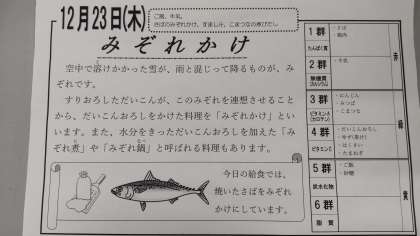 12月23日(木)
ご飯、牛乳、
さばのみぞれかけ、すまし汁、こまつなの煮びたし
みぞれかけ
空中で溶けかかった雪が、雨と混じって降るものが、み
ぞれです。
すりおろしただいこんが、このみぞれを連想させること
から、だいこんおろしをかけた料理を「みぞれかけ」とい
います。また、水分をきっただいこんおろしを加えた「み
ぞれ煮」や「みぞれ鍋」と呼ばれる料理もあります。
今日の給食では、
焼いたさばをみぞれ
かけにしています。
1群
たんぱく質
・さば
・鶏肉
2群
無機質
カルシウム
・牛乳
3群
ビタミンA
(カロテン)
・にんじん
・みつば
・こまつな
4群
ビタミンC
・だいこんおろし
・ゆず(果汁)
・はくさい
・たまねぎ
5群
炭水化物
・ご飯
・砂糖
6群
脂質
赤
緑
黄